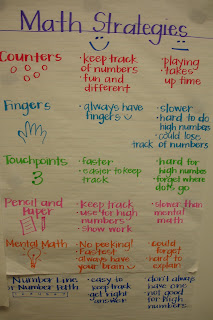 Math Strategies
Counters
• keep track
of numbers
• fun and
different
• playing
• takes
up time
Fingers
• always have
fingers
• slower
• hard to do
high numbers
• could lose
track of numbers
Touchpoints
3
• faster
• easier to keep
track
• hard for
high numbers
• forget where
dots go
Pencil and
Paper
• keep track
• use for high
numbers
• show work
• slower than
mental
math
Mental Math
• No peeking!
• fastest
• always have
your brain
• could
forget
• hard to
explain
Number Line
or Number Path
• easy to
keep track
• get right
answer
• don't always
have one
• not good
for high
numbers